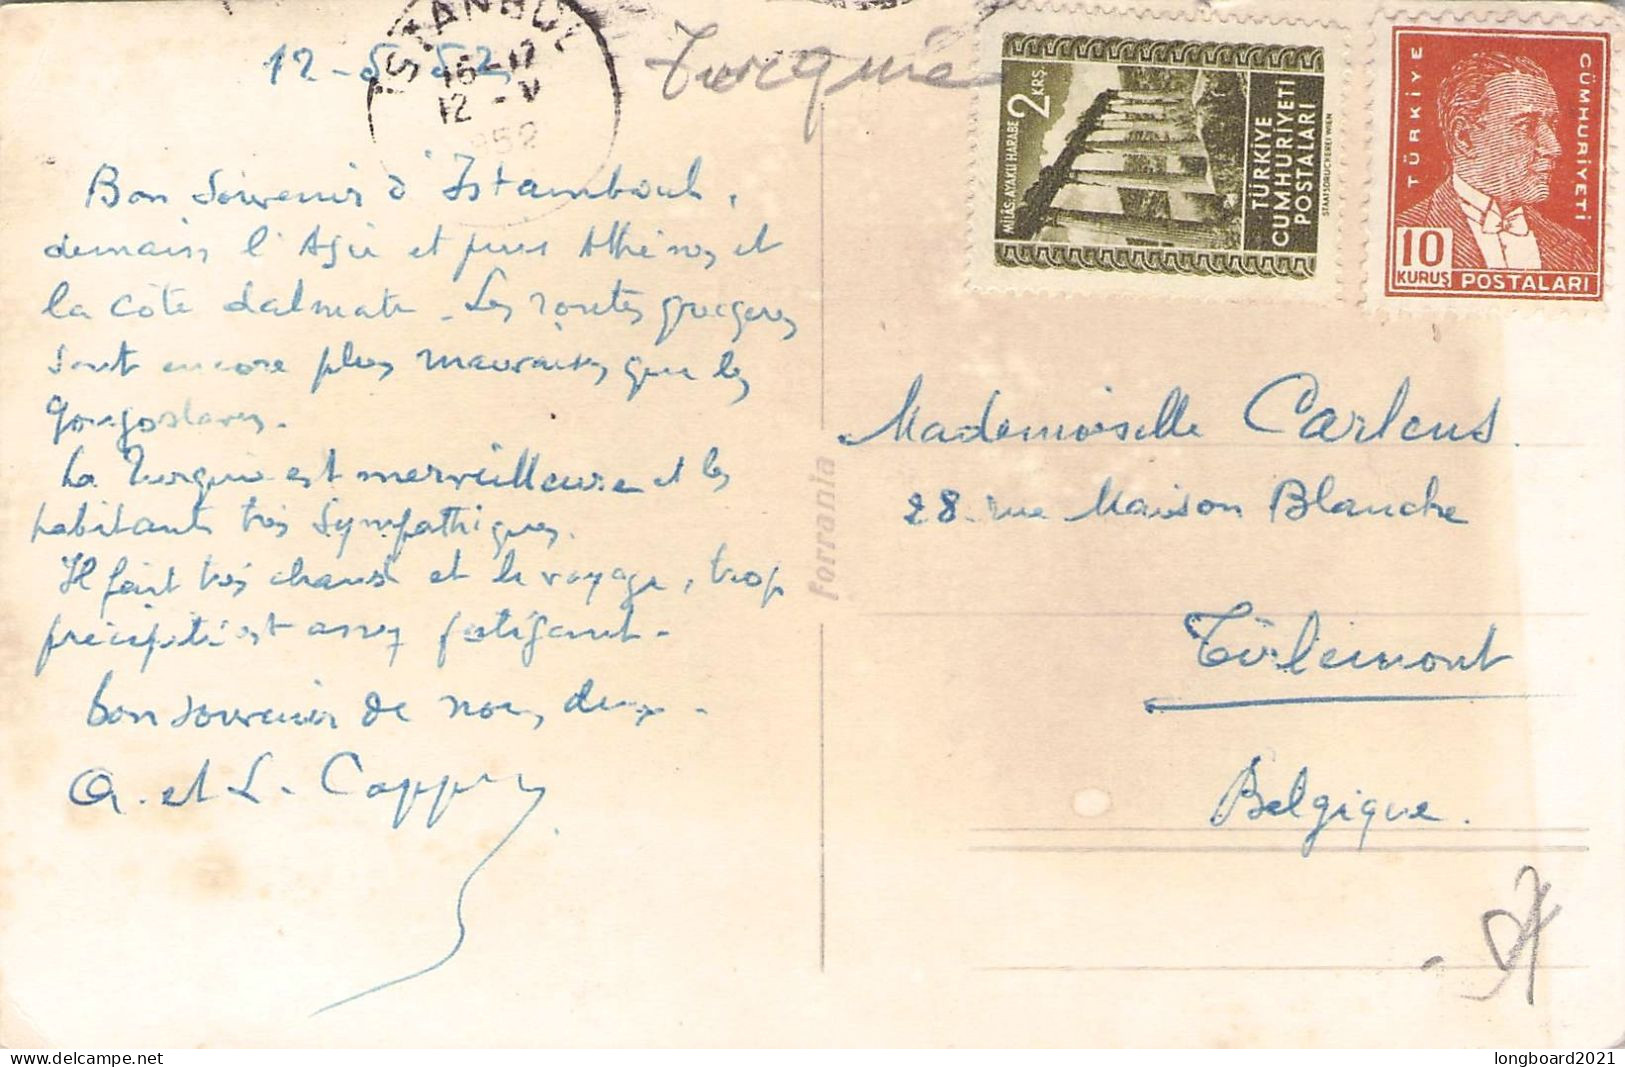 12-5-52
ISTANBUL
16-17
12-V
952
Turquie
2 KRŞ.
MİLÂS: AYAKLI HARABE
TÜRKİYE
CUMHURİYETİ
POSTALARI
STAATSDRUCKEREI WIEN
TÜRKİYE
CÜMHURİYETİ
10
KURUŞ
POSTALARI
Bon souvenir d'Istamboul,
demain l'Asie et puis Athènes et
la côte dalmate. Les routes grecques
sont encore plus mauvaises que les
yougoslaves.
La Turquie est merveilleuse et les
habitants très sympathiques.
Il fait très chaud et le voyage, trop
précipité est assez fatigant.
bon souvenir de nous deux.
et L.
ferrania
Mademoiselle Carlens.
28 rue Maison Blanche
Tirlemont
Belgique.
longboard2021